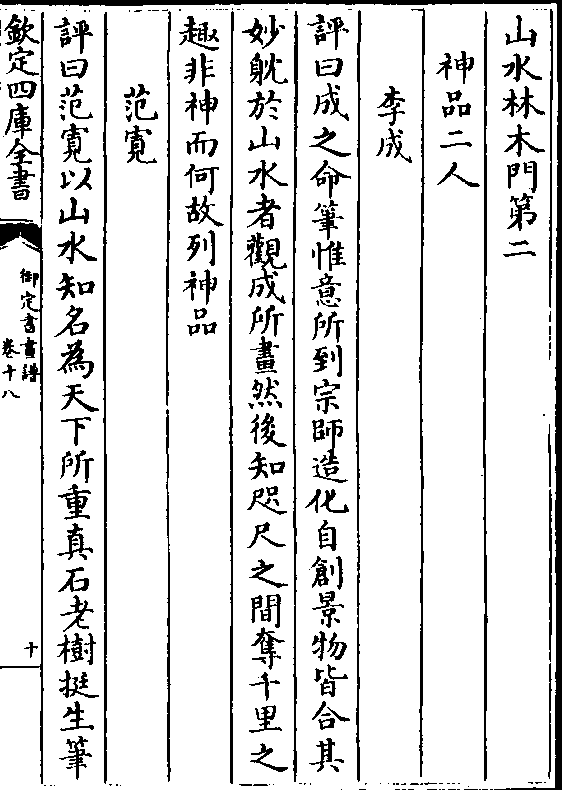 山水林木門第二
神品二人
李成
評曰成之命筆惟意所到宗師造化自創景物皆合其
妙躭於山水者觀成所畫然後知咫尺之間奪千里之
趣非神而何故列神品
范寛
評曰范寛以山水知名為天下所重真石老樹挺生筆
欽定四庫全書
御定書畫譜
卷十八
十